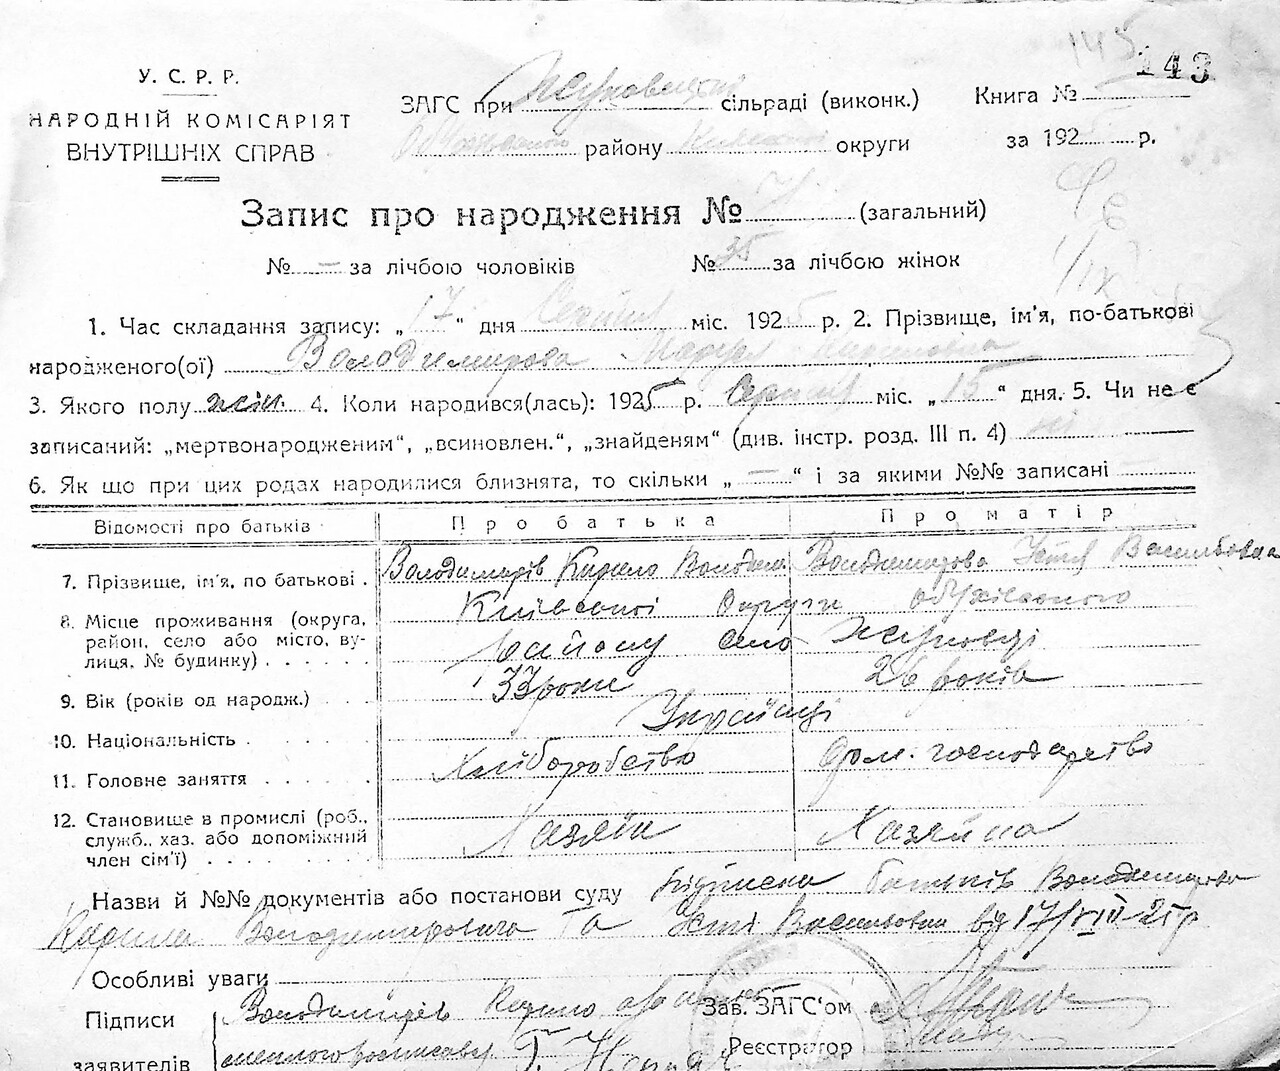 145
143
У. С. Р. Р.
НАРОДНІЙ КОМІСАРІЯТ
ВНУТРІШНІХ СПРАВ
ЗАГС при сільраді (виконк.)
району округи
Книга №
за 192 р.
Запис про народження № (загальний)
№ — за лічбою чоловіків № 35 за лічбою жінок
1. Час складання запису: „ 17 “ дня Серпня міс. 1925 р. 2. Прізвище, ім'я, по-батькові
народженого(ої) Володимирова Кириловна
3. Якого полу жін. 4. Коли народився(лась): 1925 р. Серпня міс. „ 15 “ дня. 5. Чи не є
записаний: „мертвонародженим“, „всиновлен.“, „знайденям“ (див. інстр. розд. III п. 4) ні
6. Як що при цих родах народилися близнята, то скільки „ — “ і за якими №№ записані —
Відомості про батьків Про батька Про матір
7. Прізвище, ім'я, по батькові . Володимирів Кирило Володим Володимирова Устя Васильовна
8. Місце проживання (округа, район, село або місто, ву-лиця, № будинку) . . . . . . Київської Округи Обухівського
району село
9. Вік (років од народж.) . . . 33 роки 26 років
10. Національність . . . . . . . Українці
11. Головне заняття . . . . . . Хліборобство дом. господарство
12. Становище в промислі (роб., служб., хаз. або допоміжний член сім'ї) . . . . . . . . Хазяїн Хазяйка
Назви й №№ документів або постанови суду підписка батьків Володимирова
Кирила Володимировича та Усті Васильовни від 17/VIII-25 р
Особливі уваги
Підписи
заявителів
Володимирів Кирило
Зав. ЗАГС‘ом
Реєстратор